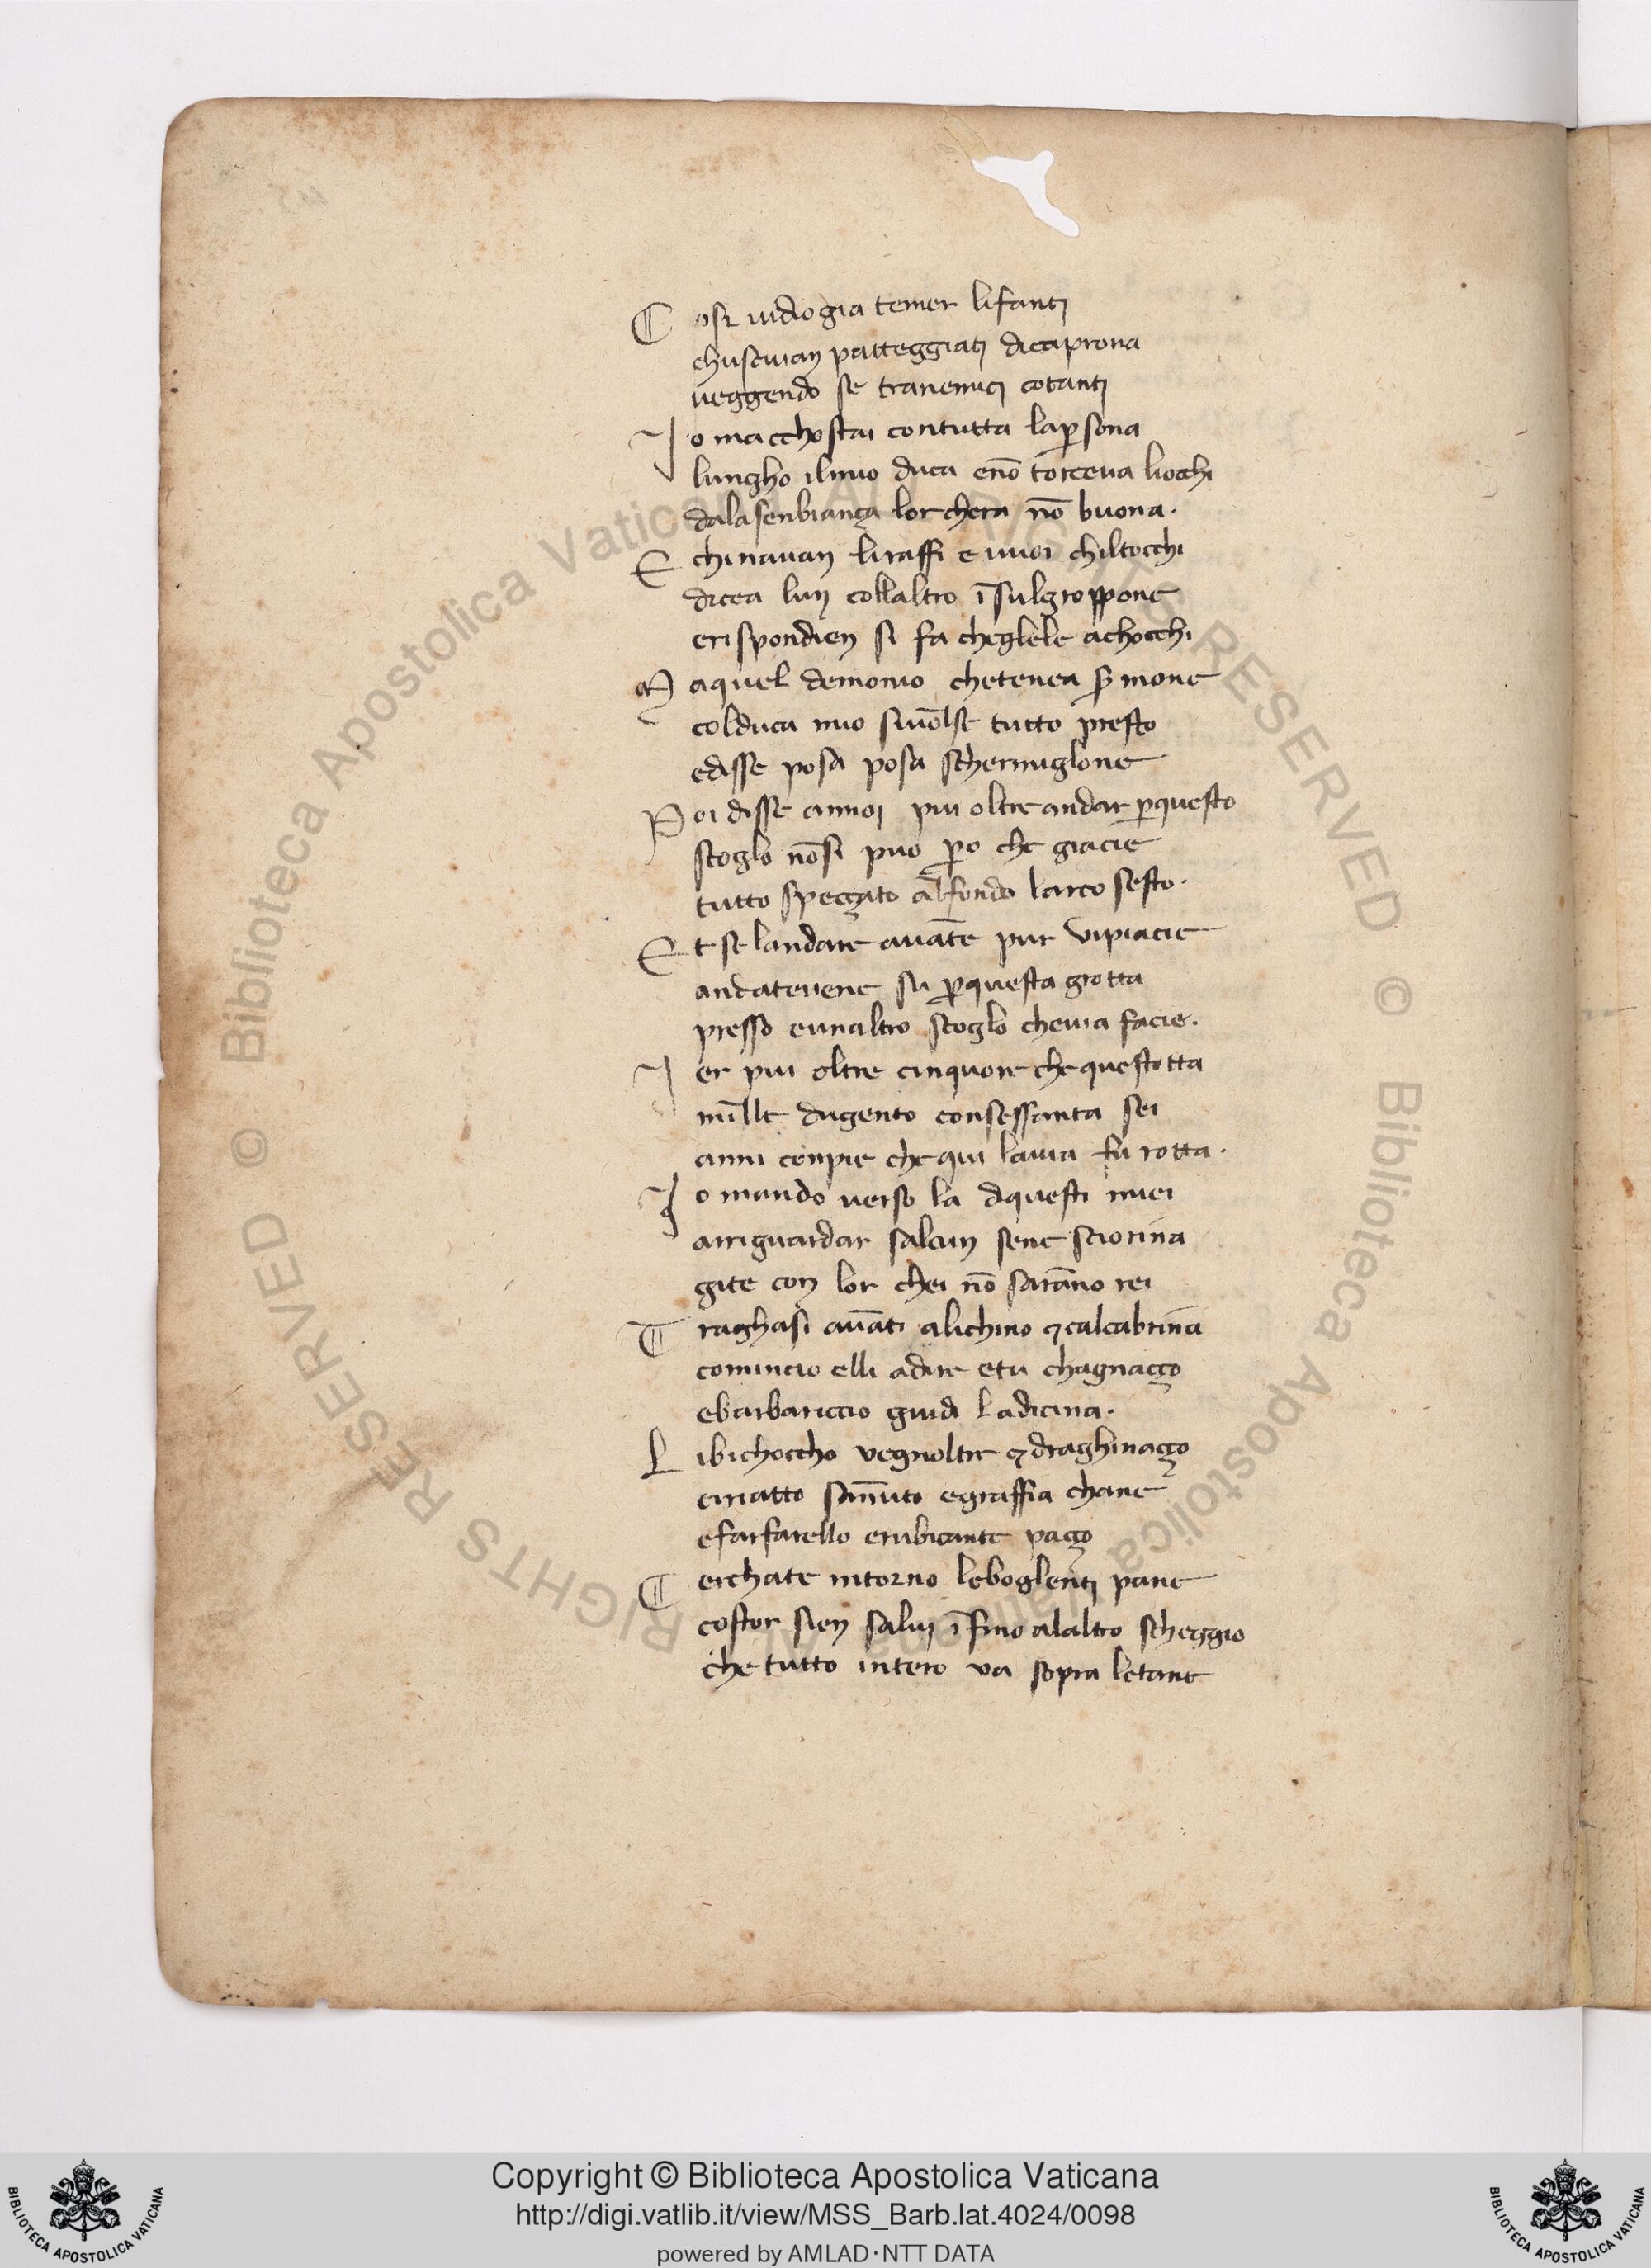 Cosi uidio gia temer li fanti
chuscivan patteggiati dicaprona
veggendo se tranemici cotanti
Io macchostai contutta lap̄sona
lungho ilmio duca enō torceva liocchi
dalasenbiança lorchera nō buona.
E chinavan liraffi e vuoi chiltocchi
dicea lun collaltro ī sulgroppone
erispondien si fa cheglele achocchi
Maquel demonio chetenea s̄mone
colduca mio sivolse tutto presto
edisse posa posa schermiglone
Poi disse annoi piu oltre andar p̄questo
scoglo nōsi puo p̄o che giacie
tutto speççato alfondo larco sesto.
Et se landare avāte pur vipiacie
andatevene su p̄questa grotta
presso eunaltro scoglo chevia facie.
Ier piu oltre cinquore che questotta
mille dugento consessanta sei
anni conpie che qui lavia fu rotta.
Io mando verso la dquesti miei
arriguardar salcun sene sciorina
gite con lor chei nō sarāno rei
Traghasi avāti alichino ⁊ calcabrina
comincio elli adire etu chagnaçço
ebarbariccio guidi ladicina.
Libichoccho vegnoltre ⁊ draghinaçço
ciriatto sānuto egraffia chane
efarfarello erubicante paçço
Cerchate intorno leboglenti pane
costor sien salvi ī fino alaltro scheggio
che tutto intero va sopra letane
© Biblioteca Apostolica Vaticana ALL RIGHTS RESERVED
Copyright © Biblioteca Apostolica Vaticana
http://digi.vatlib.it/view/MSS_Barb.lat.4024/0098
powered by AMLAD·NTT DATA
BIBLIOTECA APOSTOLICA VATICANA
BIBLIOTECA APOSTOLICA VATICANA